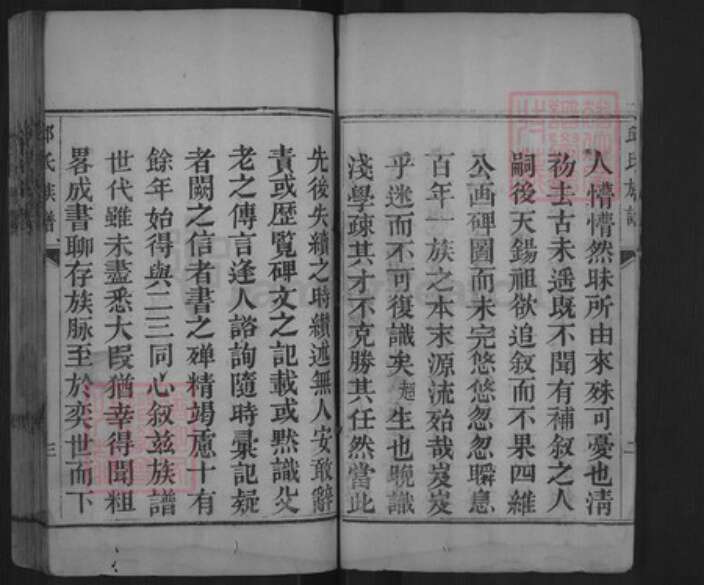 邱氏族譜
人懵懵然昧所由來殊可憂也淸
初去古未遥既不聞有補叙之人
嗣後天錫祖欲追叙而不果四維
公画碑圖而未完悠悠忽忽瞬息
百年一族之本末源流殆哉岌岌
乎迷而不可復識矣超生也晚識
淺學疎其才不克勝其任然當此
二
先後失續之時纘述無人安敢辭
責或歴覧碑文之記載或黙識父
老之傳言逢人諮詢隨時彙記疑
者闕之信者書之殫精竭慮十有
餘年始得與二三同心叙兹族譜
世代雖未盡悉大叚猶幸得聞粗
畧成書聊存族脉至於奕世而下
邱氏族譜
三